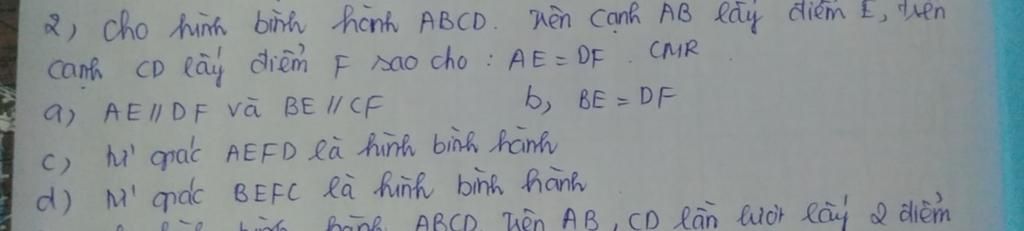 2, cho hình bình hành ABCD. trên cạnh AB lấy điểm E, trên
cạnh CD lấy điểm F sao cho : AE = DF . CMR
a) AE // DF và BE // CF b, BE = DF
c) tứ giác AEFD là hình bình hành
d) tứ giác BEFC là hình bình hành
hình bình hành ABCD trên AB, CD lần lượt lấy 2 điểm